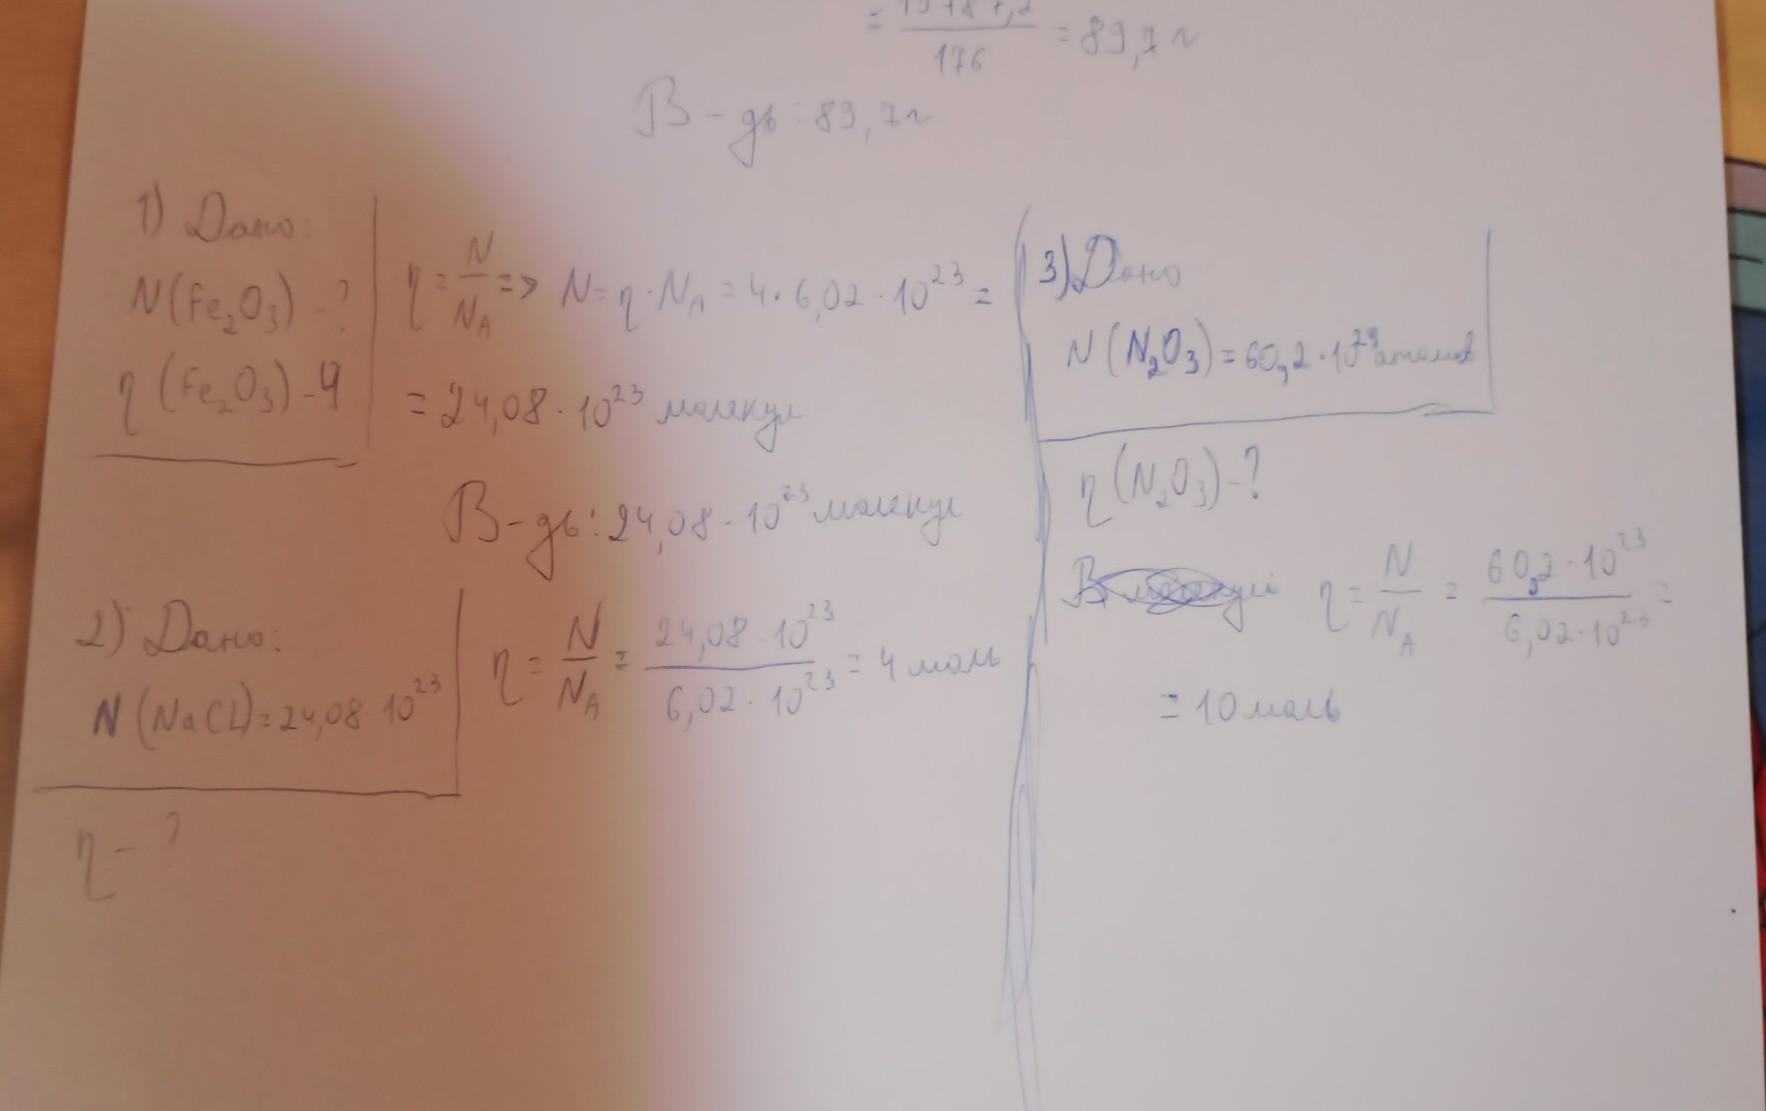 = 176 = 89,7 г
В-дь: 89,7г
1) Дано:
N(Fe₂O₃) - ?
η (Fe₂O₃) - 4
η = N/N_A => N = η · N_A = 4 · 6,02 · 10²³ =
= 24,08 · 10²³ молекул
В-дь: 24,08 · 10²³ молекул
2) Дано:
N (NaCl) = 24,08 · 10²³
η - ?
η = N/N_A = 24,08 · 10²³/6,02 · 10²³ = 4 моль
3) Дано
N (N₂O₃) = 60,2 · 10²³ атомов
η (N₂O₃) - ?
η = N/N_A = 60,2 · 10²³/6,02 · 10²³ =
= 10 моль